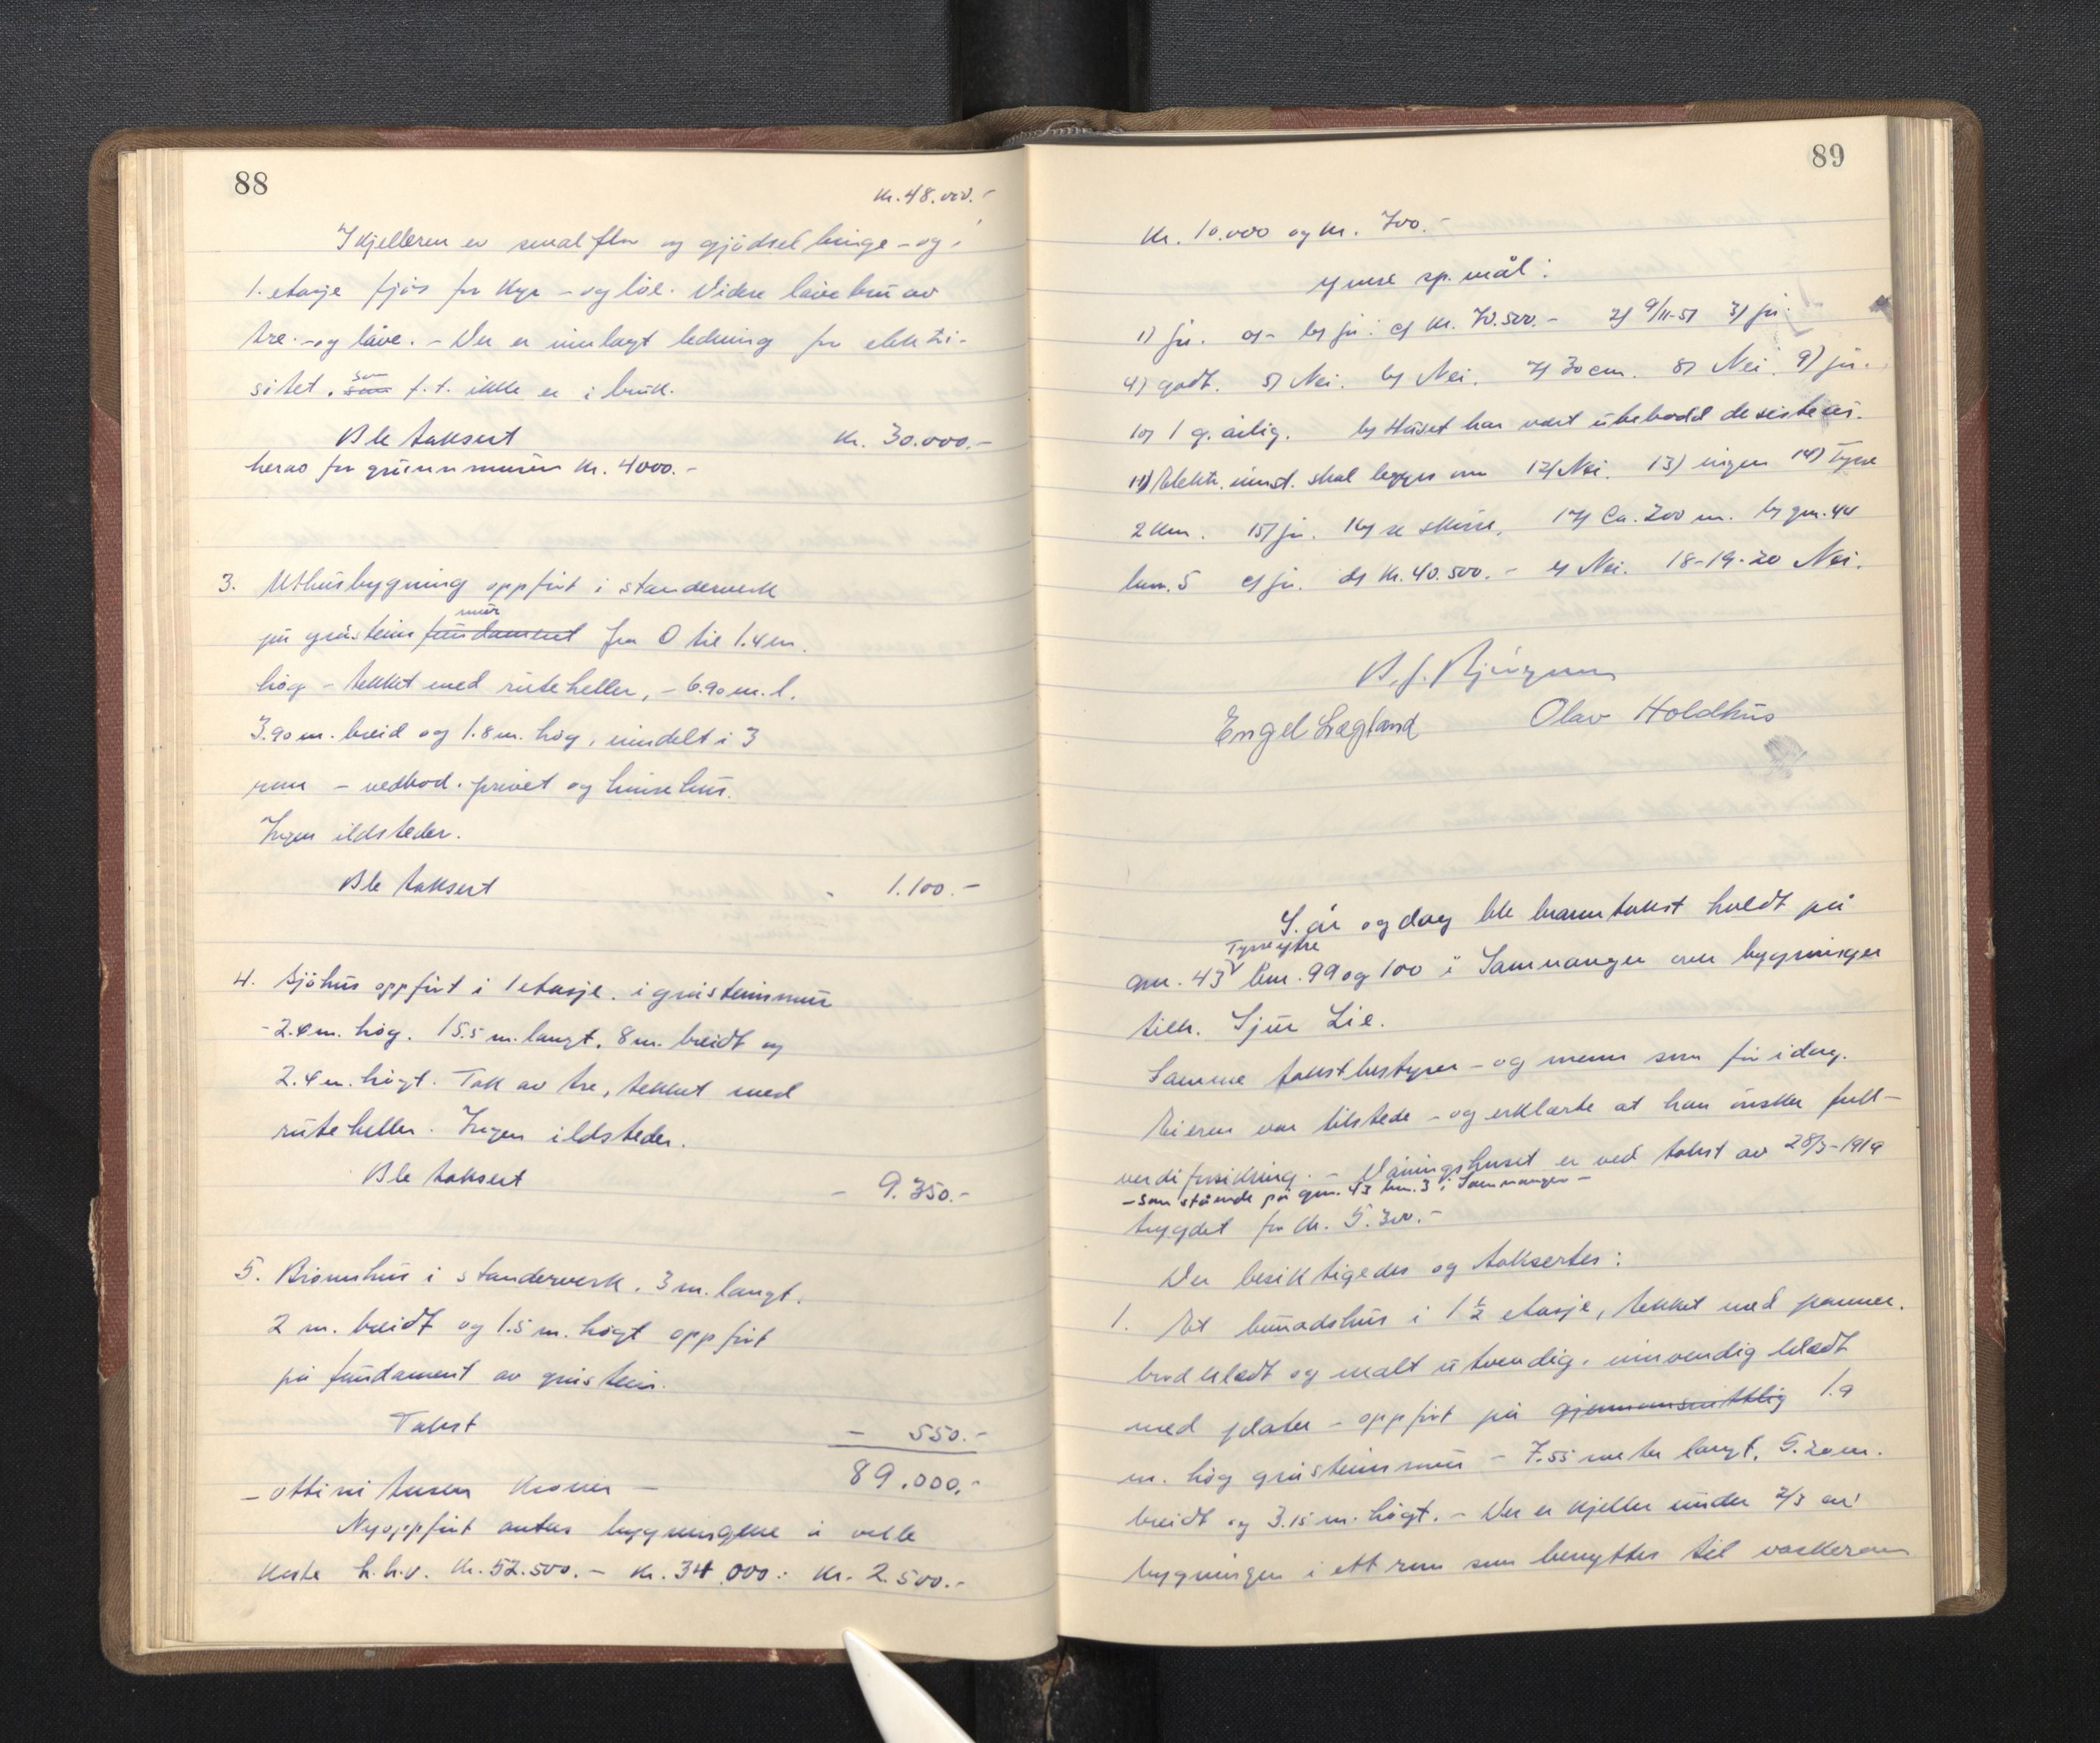 88
Kr. 48.000.-
I kjelleren er smalflor og gjødselbinge - og i
1. etasje fjøs for kyr - og löe. Videre låvebru av
tre - og låve. - Der er innlagt ledning for elektri-
sitet, som f.t. ikke er i bruk.
Ble taksert Kr. 30.000.-
herav for grunnmuren Kr. 4000.-
3. Uthusbygning oppfört i standerverk
mur
på gråsteins fundament fra 0 til 1.4 m.
hög - tekket med ruteheller, - 6.90 m. l.
3.90 m. breid og 1.8 m. hög, inndelt i 3
rum - vedbod, privet og hönsehus.
Ingen ildsteder.
Ble taksert - 1.100.-
4. Sjöhus oppfört i 1 etasje, i gråsteinsmur
- 2.4 m. hög. 15.5 m. langt, 8 m. breidt og
2.4 m. högt. Tak av tre, tekket med
ruteheller. Ingen ildsteder.
Ble taksert - 9.350.-
5. Brönnhus i standerverk, 3 m. langt,
2 m. breidt og 1.5 m. högt oppfört
på fundament av gråstein.
Takst - 550.-
- åttini tusen kroner - 89.000.-
Nyoppfört antas bygningene å ville
koste h.h.v. Kr. 52.500.- Kr. 34.000: Kr. 2.500.-
89
Kr. 10.000 og Kr. 700.-
Ymse sp.mål:
1) ja. a) - b) ja: c) Kr. 70.500.- 2) 9/11-51 3) ja.
4) godt. 5) Nei. 6) Nei. 7) 30 cm. 8) Nei. 9) ja.
10) 1 g. årlig. b) Huset har vært ubebodd de siste år.
11) Elektr. innst. skal legges om 12) Nei. 13) ingen 14) Tysse
2 km. 15) ja. 16) se skisse. 17) Ca. 200 m. b) gnr. 44
bnr. 5 c) ja. d) Kr. 40.500.- e) Nei. 18-19-20 Nei.
Engel Lægland Olav Holdhus
I. år og dag ble branntakst holdt på
Tysse ytre
gnr. 43 bnr. 99 og 100 i Samnanger over bygninger
tilh. Sjur Lie.
Samme takstbestyrer - og menn som för i dag.
Eieren var tilstede - og erklærte at han önsker full-
verdiforsikring. - Våningshuset er ved takst av 28/3-1919
- som stående på gnr. 43 bnr. 3 i Samnanger -
trygdet for Kr. 5.300.-
Der besiktigedes og taksertes:
1. Et beboadshus i 1 1/2 etasje, tekket med panner,
bordklædt og malt utvendig, innvendig klædt
med plater - oppfört på gjennomsnittlig 1.9
m. hög gråsteinsmur - 7.55 meter langt, 5.20 m.
breidt og 3.15 m. högt. - Der er kjeller under 2/3 av
bygningen i ett rum som benyttes til vaskerom